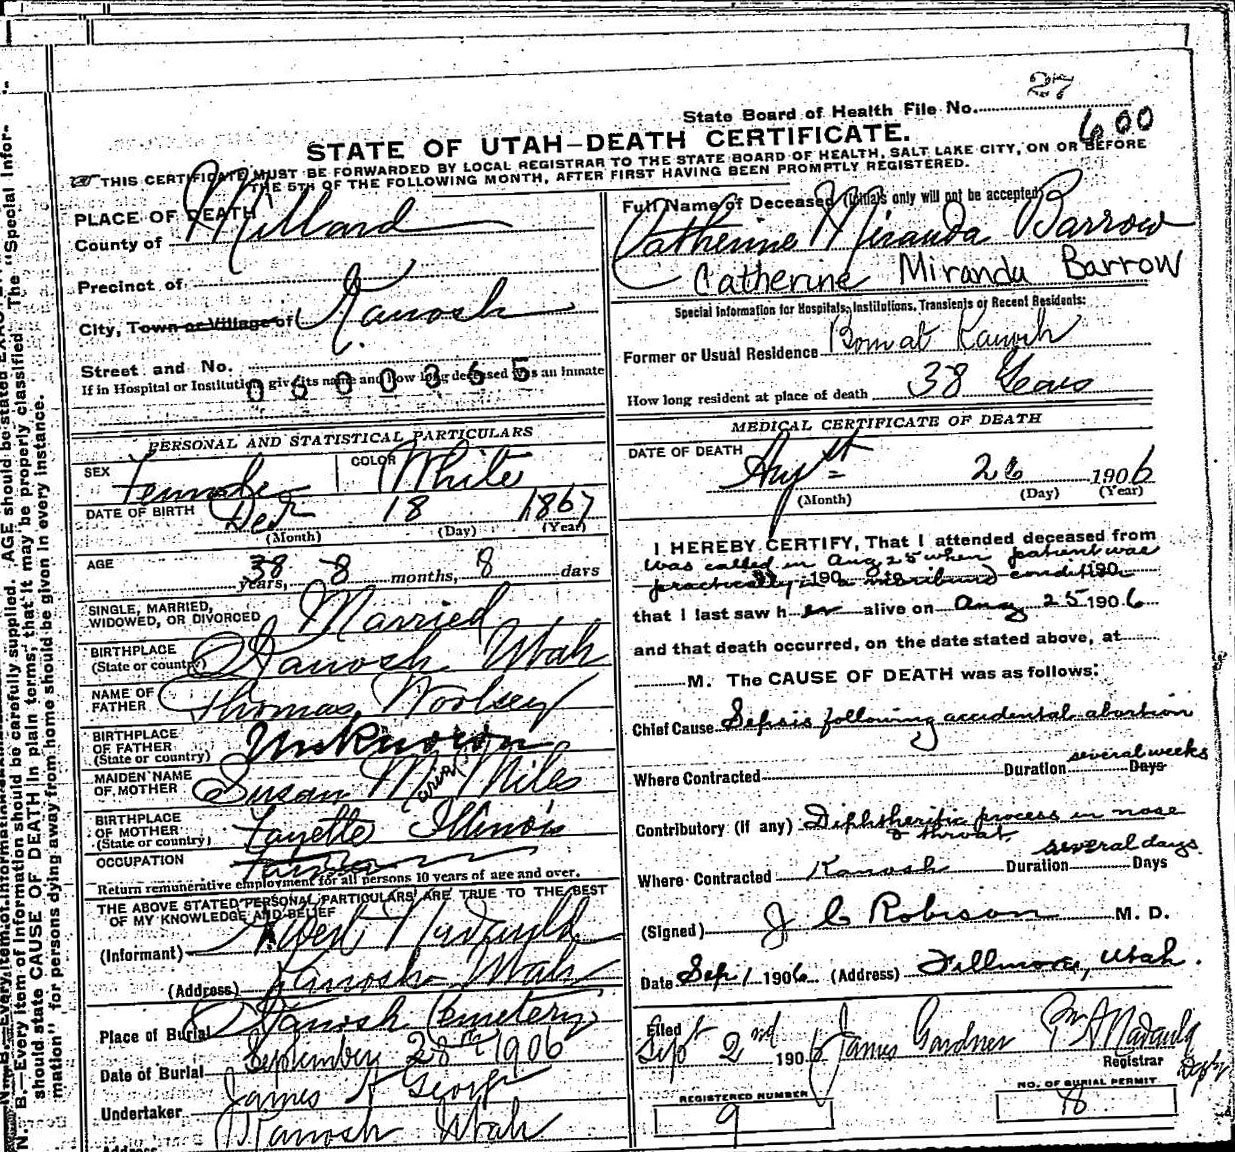 27
State Board of Health File No.
600
STATE OF UTAH—DEATH CERTIFICATE.
THIS CERTIFICATE MUST BE FORWARDED BY LOCAL REGISTRAR TO THE STATE BOARD OF HEALTH, SALT LAKE CITY, ON OR BEFORE
THE 5TH OF THE FOLLOWING MONTH, AFTER FIRST HAVING BEEN PROMPTLY REGISTERED.
PLACE OF DEATH
County of Millard
Precinct of
City, Town or Village of Kanosh
Street and No.
If in Hospital or Institution, give its name and how long deceased was an inmate
0600365
PERSONAL AND STATISTICAL PARTICULARS
SEX Female COLOR White
DATE OF BIRTH Dec 18 1867
(Month) (Day) (Year)
AGE 38 years, 8 months, 8 days
SINGLE, MARRIED,
WIDOWED, OR DIVORCED Married
BIRTHPLACE
(State or country) Kanosh Utah
NAME OF
FATHER Thomas Woolsey
BIRTHPLACE
OF FATHER
(State or country) Unknown
MAIDEN NAME
OF MOTHER Susan Maria Miles
BIRTHPLACE
OF MOTHER
(State or country) Fayette Illinois
OCCUPATION
Return remunerative employment for all persons 10 years of age and over.
THE ABOVE STATED PERSONAL PARTICULARS ARE TRUE TO THE BEST
OF MY KNOWLEDGE AND BELIEF
(Informant) Albert Nadauld
(Address) Kanosh Utah
Place of Burial Kanosh Cemetery
Date of Burial September 28th 1906
Undertaker James A George
Kanosh Utah
Address
Full Name of Deceased (Initials only will not be accepted)
Catherine Miranda Barrow
Catherine Miranda Barrow
Special Information for Hospitals, Institutions, Transients or Recent Residents:
Former or Usual Residence Born at Kanosh
How long resident at place of death 38 Years
MEDICAL CERTIFICATE OF DEATH
DATE OF DEATH Augst 26 1906
(Month) (Day) (Year)
I HEREBY CERTIFY, That I attended deceased from
was called in Aug 25 when patient was
practically in a moribund condition
190 190
that I last saw her alive on Aug 25 1906
and that death occurred, on the date stated above, at
M. The CAUSE OF DEATH was as follows:
Chief Cause Sepsis following accidental abortion
Where Contracted Duration several weeks Days
Contributory (if any) Diphtheritic process in nose
& throat
Where Contracted Kanosh Duration several days Days
(Signed) J C Robison M. D.
Date Sep 1 1906 (Address) Fillmore, Utah.
Filed
Sept 2nd 1906 James Gardner Nadauld
Registrar Depty
REGISTERED NUMBER
9
NO. OF BURIAL PERMIT
8
N. B.—Every item of information should be carefully supplied. AGE should be stated
should state CAUSE OF DEATH in plain terms, that it may be properly classified. The "Special Infor-
mation" for persons dying away from home should be given in every instance.